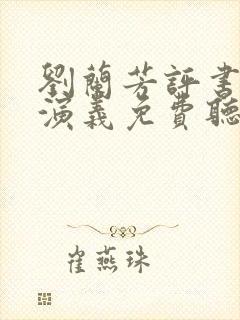 劉蘭芳評書
演義免費聽
崔燕珠